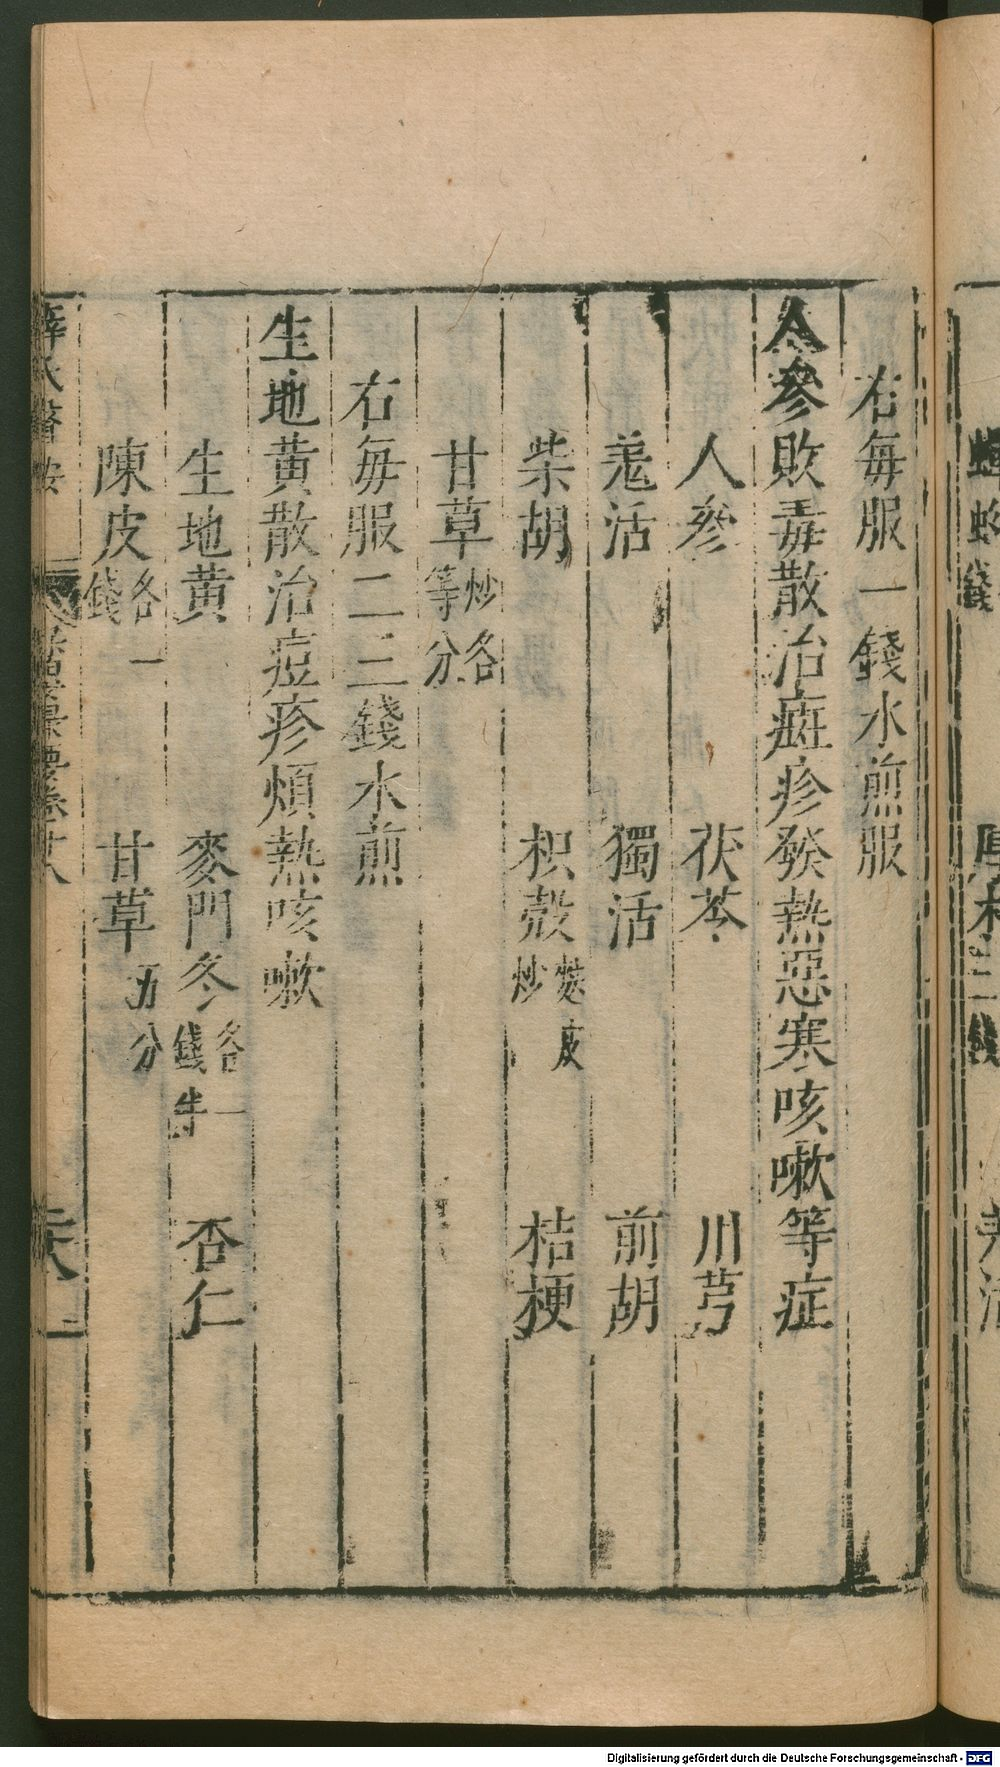 右每服一錢水煎服
人參敗毒散治癍疹發熱惡寒咳嗽等症
人參 茯苓 川芎
羗活 獨活 前胡
柴胡 枳殼麩皮炒 桔梗
甘草炒各等分
右每服二三錢水煎
生地黃散治痘疹煩熱咳嗽
生地黃 麥門冬各一錢半 杏仁
陳皮各一錢 甘草五分
Digitalisierung gefördert durch die Deutsche Forschungsgemeinschaft - DFG